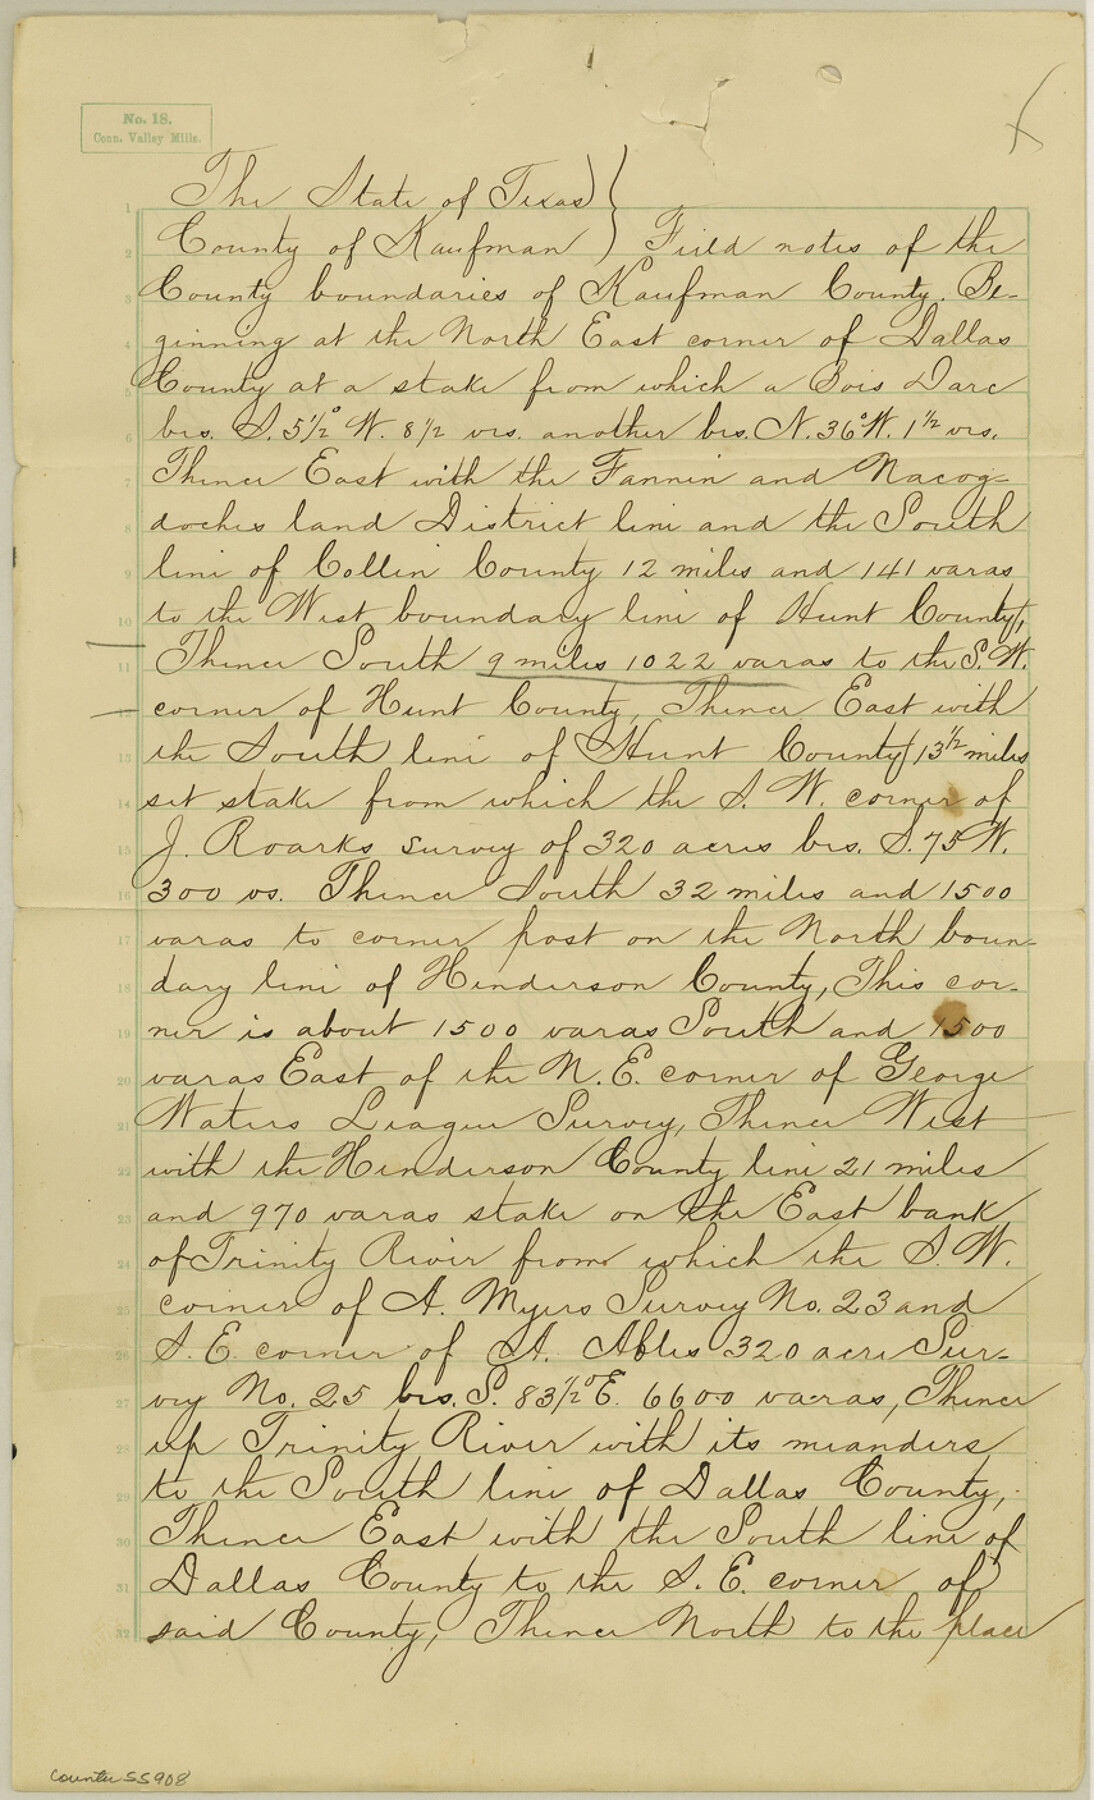 No. 18.
Conn. Valley Mills.
The State of Texas }
County of Kaufman ) Field notes of the
County boundaries of Kaufman County. Be-
ginning at the North East corner of Dallas
County at a stake from which a Bois Darc
brs. S. 5 1/2° W. 8 1/2 vrs. another brs. N. 36° W. 1 1/2 vrs.
Thence East with the Fannin and Nacog-
doches land District line and the South
line of Collin County 12 miles and 141 varas
to the West boundary line of Hunt County,
Thence South 9 miles 1022 varas to the S. W.
corner of Hunt County, Thence East with
the South line of Hunt County 13 1/2 miles
set stake from which the S. W. corner of
J. Roarks survey of 320 acres brs. S. 75 W.
300 vs. Thence South 32 miles and 1500
varas to corner post on the North boun-
dary line of Henderson County, This cor-
ner is about 1500 varas South and 1500
varas East of the N. E. corner of George
Waters League Survey, Thence West
with the Henderson County line 21 miles
and 970 varas stake on the East bank
of Trinity River from which the S. W.
corner of A. Myers Survey No. 23 and
S. E. corner of A. Ables 320 acre Sur-
vey No. 25 brs. S. 83 1/2° E. 6600 varas, Thence
up Trinity River with its meanders
to the South line of Dallas County,
Thence East with the South line of
Dallas County to the S. E. corner of
said County, Thence North to the place
1
2
3
4
5
6
7
8
9
10
11
12
13
14
15
16
17
18
19
20
21
22
23
24
25
26
27
28
29
30
31
32
Counter 55908